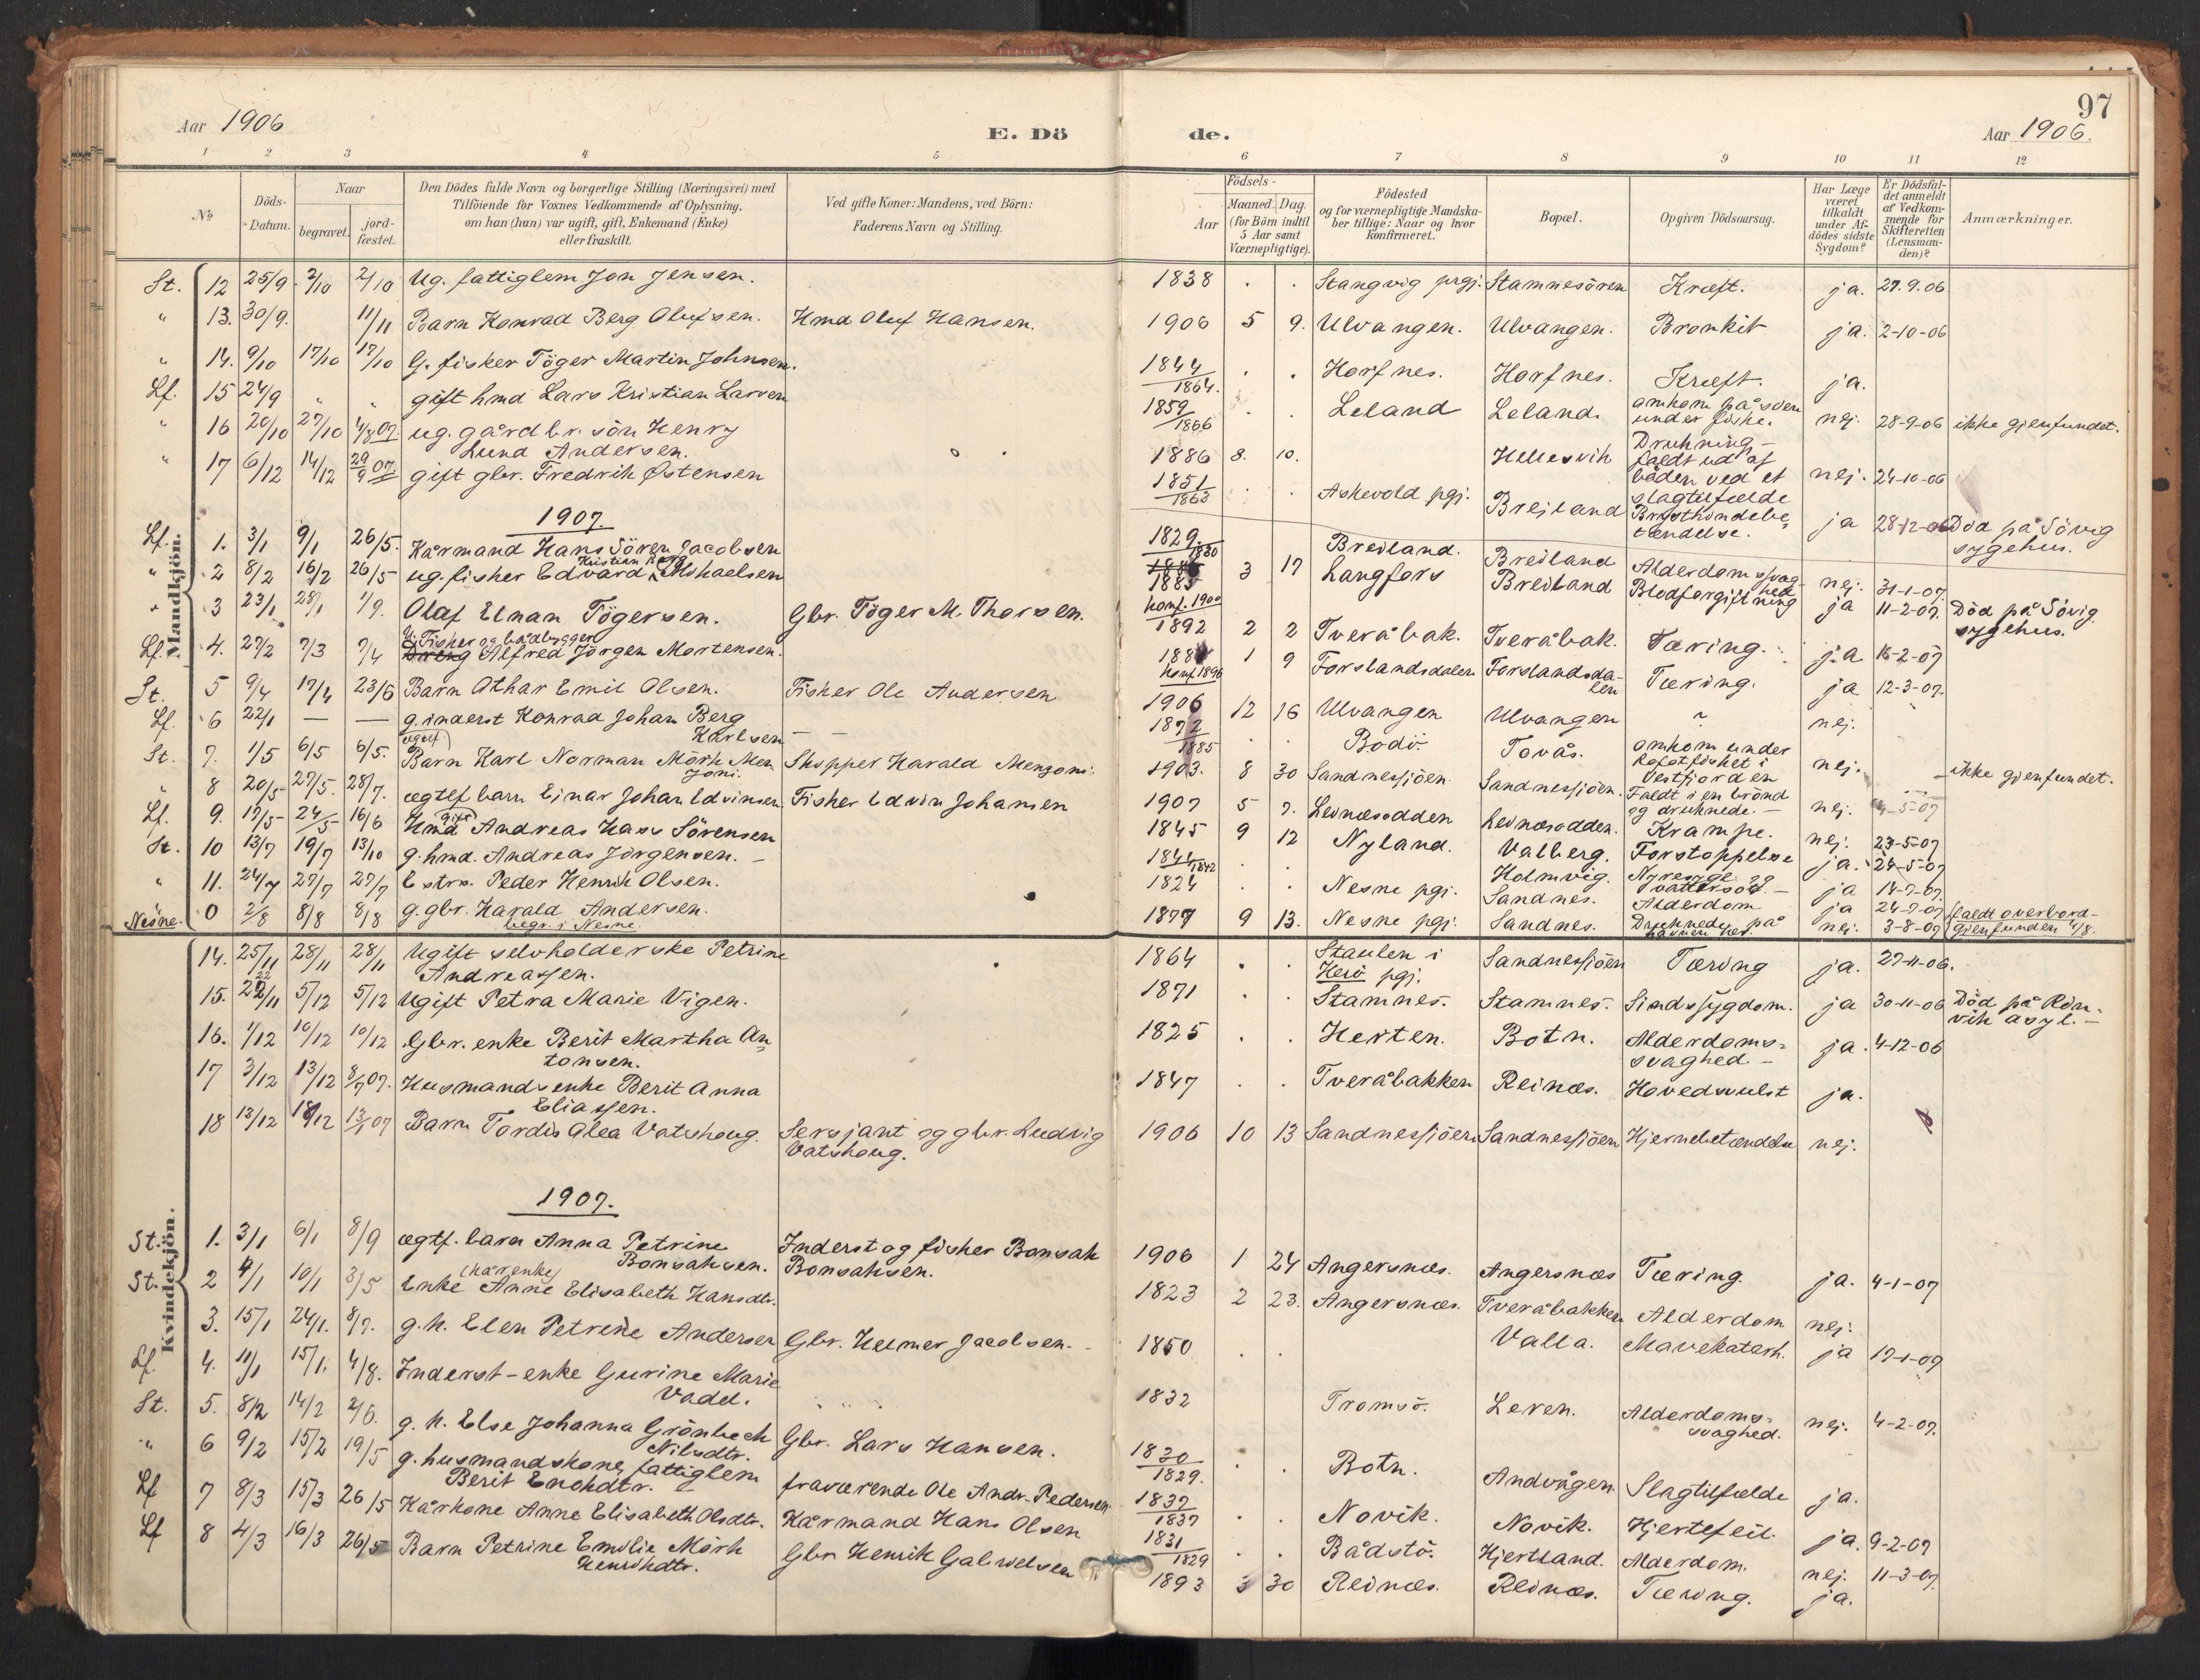 97
Aar 1906
E. Dö de.
Aar 1906.
1 2 3 4 5 6 7 8 9 10 11 12
No
Döds-Datum.
Naar
begravet.
jordfæstet.
Den Dödes fulde Navn og borgerlige Stilling (Næringsvei) med
Tilföiende for Voxnes Vedkommende af Oplysning,
om han (hun) var ugift, gift, Enkemand (Enke)
eller fraskilt.
Ved gifte Koner: Mandens, ved Börn:
Faderens Navn og Stilling.
Födsels-
Aar
Maaned. Dag.
(for Börn indtil
5 Aar samt
Værnepligtige).
Födested
og for værnepligtige Mandska-
ber tillige: Naar og hvor
konfirmeret.
Bopæl.
Opgiven Dödsaarsag.
Har Læge
været
tilkaldt
under Af-
dödes sidste
Sygdom?
Er Dödsfal-
det anmeldt
af Vedkom-
mende for
Skifteretten
(Lensman-
den)?
Anmærkninger.
Mandkjön.
St. 12 25/9 2/10 2/10 Ug. fattiglem Jon Jensen. 1838 . . Stangvig prgj. Stamnesören Kræft. ja. 27.9.06
" 13. 30/9. 11/11 Barn Konrad Berg Olufsen. Hmd Oluf Hansen. 1906 5 9. Ulvangen. Ulvangen. Bronkit ja. 2-10-06
" 14. 9/10 17/10 17/10 G. fisker Töger Martin Johnsen. 1844/1864. . . Horfnes. Horfnes. Kræft. ja.
Lf. 15 24/9 " " gift hmd Lars Kristian Larsen 1859/1866 . . Leland Leland. omkom på söen
under fiske. nej. 28-9-06 ikke gjenfundet.
" 16 20/10 27/10 4/8 07. ug. gårdbr. sön Henry
Lund Andersen. 1886 8. 10. Hellesvik Drukning -
faldt ud af
båden ved et
slagtilfælde nej. 24-10-06
" 17 6/12 14/12 29/9 07. gift gbr. Fredrik Østensen 1851/1863 . . Askevold pgj. Breiland Brysthindebe
tændelse. ja 28-12-06 Död på Sövig
sygehus.
1907.
Lf. 1. 3/1 9/1 26/5. Kårmand Hans Sören Jacobsen 1829./1830 Breiland. Breiland Alderdomssvag
hed nej. 31-1-07.
" 2 8/2 16/2 26/5 ug. fisker Edvard Kristian Mikaelsen 1885
konf. 1900 3 17 Langfors Breiland Blodforgiftning ja 11-2-07. Död på Sövig
sygehus.
" 3 23/1 28/1 1/9. Olaf Einan Tögersen. Gbr. Töger M. Thorsen. 1892 2 2 Tveråbak. Tveråbak. Tæring. ja 16-2-07
Lf. 4. 27/2 7/3 7/4 U. Fisker og bådbygger
Dreng Alfred Jörgen Mortensen. konf 1896 1 9 Forslandsdalen Forslandsda-
len Tæring. ja 12-3-07.
St. 5 9/4 17/4 23/6 Barn Othar Emil Olsen. Fisker Ole Andersen 1906 12 16 Ulvangen Ulvangen ? nej.
Lf. 6 22/1 — — g. inderst Konrad Johan Berg
Karlsen — — 1872/1885 . . Bodö. Tovås. omkom under
Lofotfisket i
Vestfjorden nej. — ikke gjenfundet.
St. 7. 1/5 6/5 6/5. ægtef.
Barn Karl Norman Mörk Men
zoni. Skipper Harald Menzoni. 1903. 8 30 Sandnessjöen Sandnessjöen. Faldt i en brönd
og druknede. — nej. 4-5-07
" 8 20/5 27/5. 28/7. ægtef barn Einar Johan Edvinsen Fisker Edvin Johansen 1907 5 7. Leinesodden Leinesodden. Krampe. nej. 23-5-07
Lf. 9. 17/5 24/5 16/6 gift
Hmd Andreas Hans Sörensen 1845 9 12 Nyland. Valberg. Forstoppelse ja. 24-5-07
St. 10 13/7 19/7 13/10 g. hmd. Andreas Jörgensen. — 1842 . . Holmvig. Nyresyge og
vattersot. — ja 14-7-07.
" 11. 24/7 27/7 27/7 Peder Henrik Olsen. 1824 . . Nesne pgj. Sandnes. Alderdom ja 24-7-07
Nesne. 0 2/8 8/8 8/8 g. gbr. Harald Andersen.
begr. i Nesne. 1877 9 13. Nesne pgj. Sandnes. Druknede på
havnen her. nej. 3-8-07 faldt overbord -
gjenfunden 4/8.
Kvindekjön.
14. 25/11 28/11 28/11 Ugift selvholderske Petrine
Andreassen. 1864 . . Staulen i
Herö pgj. Sandnessjöen Tæring ja. 27-11-06.
15. 22/11 5/12 5/12 Ugift Petra Marie Vigen. 1871 . . Stamnes. Stamnes. Sindssygdom. ja 30-11-06 Död på Rön-
vik asyl. —
16. 1/12 10/12 10/12 Gbr. enke Berit Martha An
tonsen. 1825 . . Herten. Botn. Alderdoms-
svaghed. — ja. 4-12-06
17 3/12 13/12 8/7 07. Husmandsenke Berit Anna
Eliassen. 1847 . . Tveråbakken Reines. Hovedsvulst ja.
18 13/12 18/12 13/1 07 Barn Tordis Alea Vatshoug. Sersjant og gbr. Ludvig
Vatshoug. 1906 10 13 Sandnessjöen Sandnessjöen Hjernebetændelse nej.
1907.
St. 1. 3/1 6/1 8/9 ægtf. barn Anna Petrine
Bonsaksen. Inderst og fisker Bonsak
Bonsaksen. 1906 1 24 Angersnæs. Angersnæs Tæring. ja. 4-1-07
St. 2 4/1 10/1 3/5 (kårenke)
Enke Anne Elisabeth Hansdtr. 1823 2 23. Angersnæs. Tveråbakken Alderdom nej.
3. 15/1 24/1. 8/7. g. k. Elen Petrine Andersen Gbr. Helmer Jacobsen. 1850 . . Valla. Mavekatarh. ja 17-1-07
Lf. 4. 11/1 15/1. 4/8. Inderst-enke Gurine Marie
Vadel. 1832 Tromsö. Leren. Alderdoms-
svaghed. nej. 4-2-07.
St. 5. 8/2 14/2 2/6. g. k. Else Johanna Grönbech
Nilsdtr. Gbr. Lars Hansen. 1830/1829. . . Botn. Andvågen Slagtilfælde ja.
" 6 9/2 15/2 19/5 g. husmandskone, fattiglem
Berit Enokdtr. fraværende Ole Andr. Pedersen 1837/1837 . . Novik. Novik. Hjertefeil. ja. 9-2-07
Lf 7 8/3 15/3 26/5 Kårkone Anne Elisabeth Olsdtr. Kårmand Hans Olsen 1831/1829 . . Bådstö. Hjertland. Alderdom. nej. 11-3-07.
Lf 8 4/3 16/3 26/5 Barn Petrine Emilie Mörk
Henrikdtr. Gbr Henrik Gabrielsen 1893 3 30 Reines. Reines. Tæring. ja.